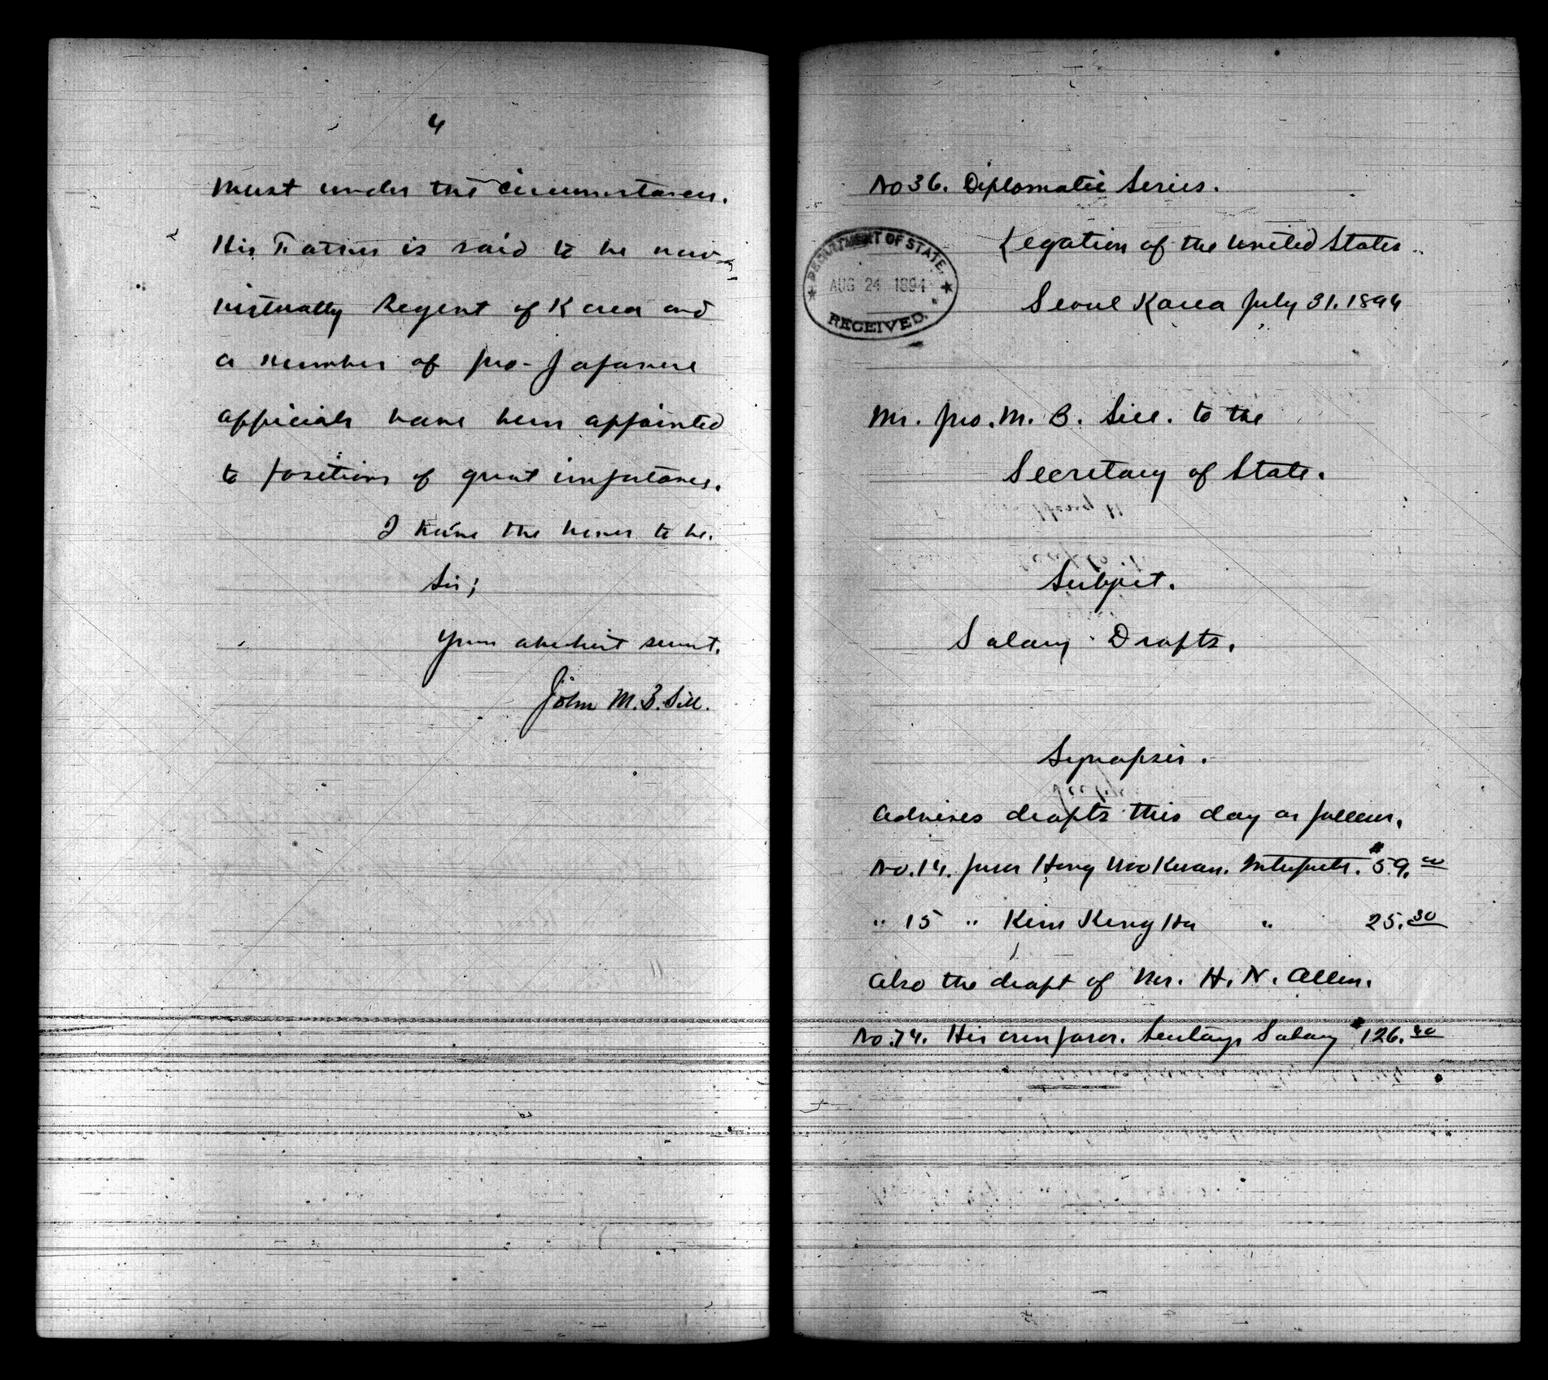 4
must under the circumstances.
His Father is said to be now
virtually Regent of Korea and
a number of pro-Japanese
officials have been appointed
to positions of great importance.
I have the honor to be.
Sir;
Your obedient servant.
John M. B. Sill.
No 36. Diplomatic Series.
Legation of the United States
Seoul Korea July 31. 1894
DEPARTMENT OF STATE.
AUG 24 1894
RECEIVED.
Mr. Jno. M. B. Sill. to the
Secretary of State.
Subject.
Salary Drafts.
Synopsis.
Advises drafts this day as follows.
No. 14. favor Hong Woo Kwan. Interpreter. $59.00
" 15 " Kim Keng Ha " 25.30
Also the draft of Mr. H. N. Allen.
No. 74. His own favor. Secretarys Salary $126.40